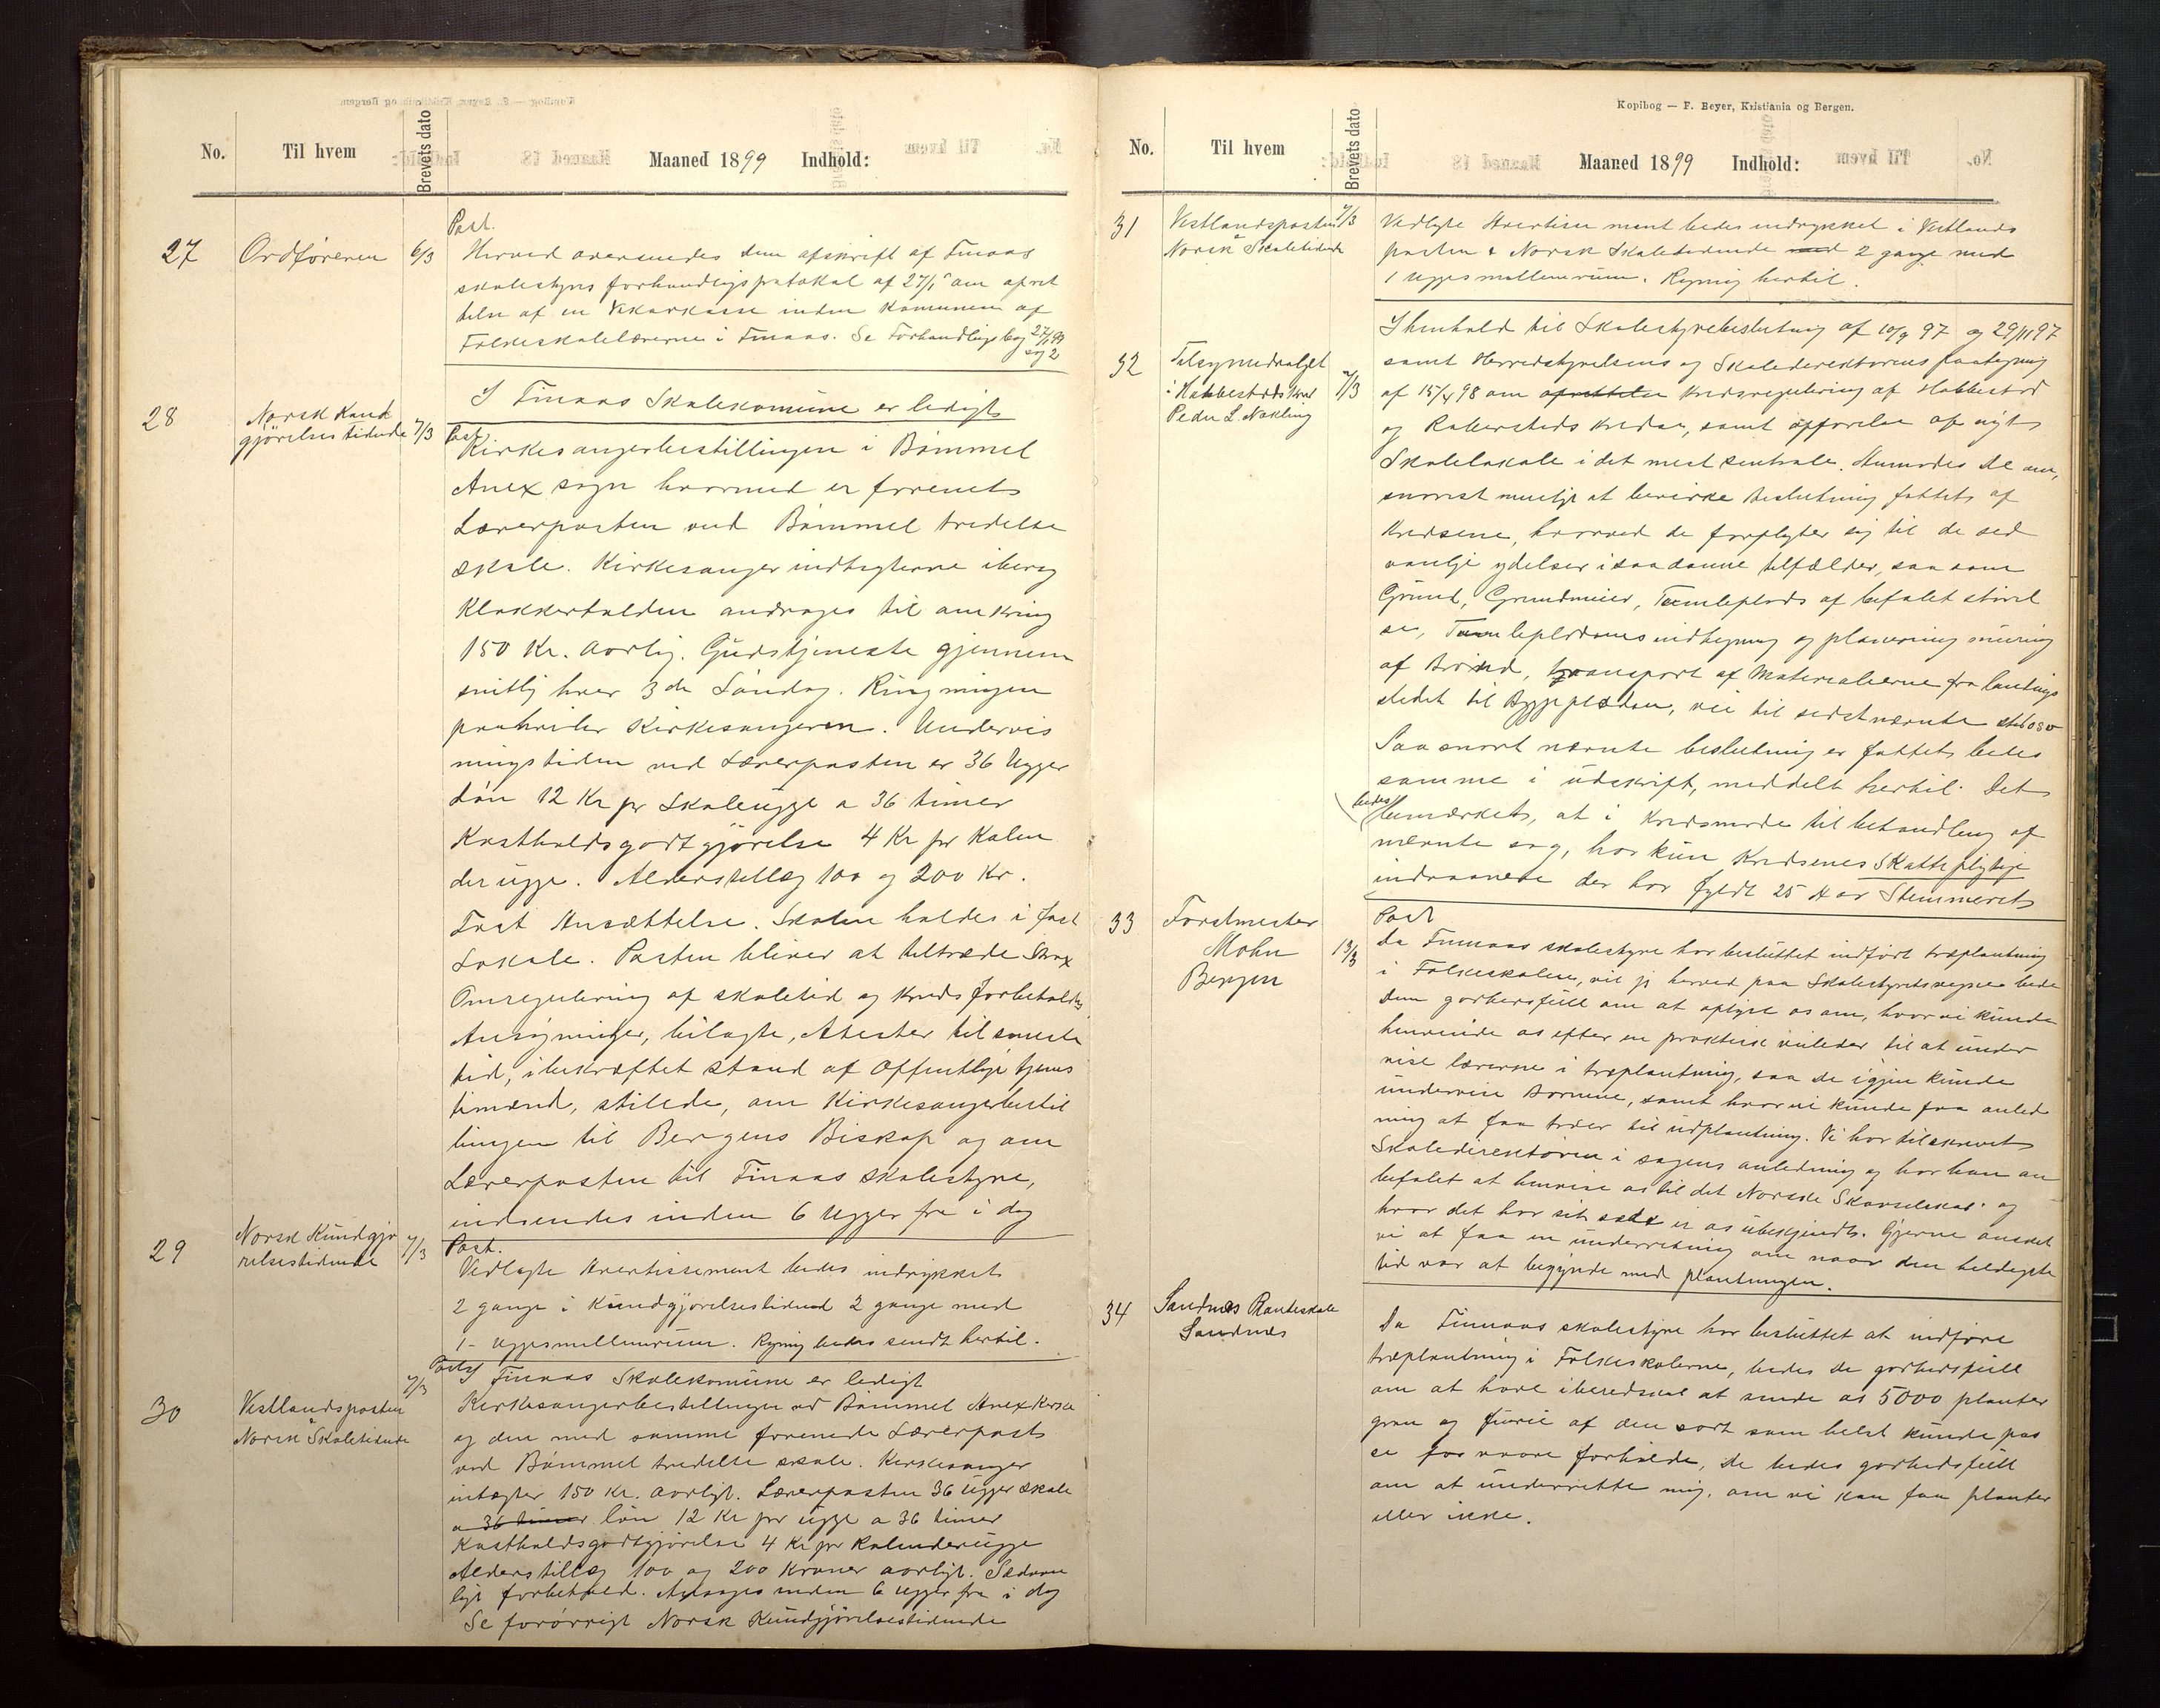 No. Til hvem Brevets dato Maaned 1899 Indhold:
27 Ordføreren 6/3
Post.
Herved oversendes dem afskrift af Finaas
skolestyres forhandligsprotokol af 27/1 om opret
telse af en Vikarkasse inden Komunen af
Folkeskolelærerne i Finaas. Se Forhandligsbog 27/1 99
sag 2
28 Norsk Kund
gjørelsestidende 7/3
I Finaas Skolekomune er ledigt
Post
Kirkesangerbestillingen i Bømmel
Anex sogn hvormed er forenet
Lærerposten ved Bømmel tredelte
skole. Kirkesanger indtægterne ibereg
Klokkertolden andrages til omkring
150 Kr. aarlig. Gudstjeneste gjennem
snitlig hver 3de Søndag. Ringningen
paahviler Kirkesangeren. Undervis
ningstiden ved Lærerposten er 36 Uger
Løn 12 Kr pr Skoleuge a 36 timer
Kostholdsgodtgjørelse 4 Kr pr Kalen
deruge. Alderstillæg 100 og 200 Kr.
Fast Ansættelse. Skolen holdes i fast
Lokale. Posten bliver at tiltræde Strax
Omregulering af skoletid og Kreds forbeholdes
Ansøgninger, bilagte, Atester til seneste
tid, i bekræftet stand af Offentlige tjenes
temænd, stilede, om Kirkesangerbestil
lingen til Bergens Biskop og om
Lærerposten til Finaas skolestyre,
indsendes inden 6 Uger fra i dag
29 Norsk Kundgjø
relsestidende 7/3
Post.
Vedlagte Avertissement bedes indrykket
2 gange i Kundgjørelsestidend 2 gange med
1- uges mellemrum. Regning bedes sendt hertil.
30 Vestlandsposten
Norsk Skoletidende 7/3
Post
I Finaas Skolekomune er ledigt
Kirkesangerbestillingen ved Bømmel Anex Kirke
og den med samme forenede Lærerpost
ved Bømmel tredelte skole. Kirkesanger
intægter 150 Kr. aarligt. Lærerposten 36 Uger skole
a 36 timer løn 12 Kr pr uge a 36 timer
Kostholdsgodtgjørelse 4 Kr pr Kalenderuge
Alderstillæg 100 og 200 Kroner aarligt. Sædvan
ligt forbehold. Ansøges inden 6 Uger fra i dag
Se forøvrigt Norsk Kundgjørelsestidende
Kopibog — F. Beyer, Kristiania og Bergen.
No. Til hvem Brevets dato Maaned 1899 Indhold:
31 Vestlandsposten 7/3
Norsk Skoletidende
Vedlagte Avertise ment bedes indrykket i Vestlands
posten & Norsk Skoletidende med 2 gange med
1 Uges mellemrum. Regning hertil.
32 Tilsynsudvalget
i Habbestads Kreds 7/3
Peder L Nækling
I henhold til Skolestyrebeslutning af 10/9 97 og 29/11 97
samt Herredstyrelsens og Skoledirektørens paategning
af 15/4 98 om oprettelse Kredsregulering af Habbestad
og Kredse, samt opførelse af nyt
Skolelokale i det mest sentrale. Anmodes De om,
snarest muligt at bevirke Beslutning fattet af
Kredsene, hvorved de forpligter sig til de sed
vanlige ydelser i saadanne tilfælder, saa som
Grund, Grundmur, Tomteplads af befalet størrel
se, Tomteplassens indhegning og planering muring
af Brønd, transport af Materialierne fra landings
stedet til Byggepladsen, vei til sidstnævnte sted osv
Saa snart nævnte beslutning er fattet bedes
samme i udskrift, meddelt hertil. Det
bedes bemærket, at i Kredsmøde til behandling af
nævnte sag, har kun Kredsenes Skattepligtige
indvaanere der har fyldt 25 Aar Stemmeret
33 Forstmester
Mohn 13/3
Bergen
Post
Da Finnaas skolestyre har besluttet indført træplantning
i Folkeskolen, vil jeg herved paa Skolestyrets vegne bede
Dem godhedsfuld om at oplyse os om, hvor vi kunde
henvende os efter en praktisk veileder til at under
vise lærerne i træplantning, saa de igjen kunde
undervise Børnene, samt hvor vi kunde faa anled
ning at faa træer til udplantning. Vi har tilskrevet
Skoledirektøren i sagens anledning og har han an
befalet at henvise os til det Norske Skovselskab og
hvor det har sit sæde er os ubekjendt. Gjerne ønsket
vi at faa en underretning om naar den heldigste
tid var at begynde med plantningen.
34 Sandnes Planteskole
Sandnes
Da Finnaas skolestyre har besluttet at indføre
træplantning i Folkeskolerne, bedes de godhedsfuld
om at have i beredskab at sende os 5000 planter
gran og furu af den sort som helst kunde pas
se for vaare forholde, De bedes godhedsfuld
om at underrette mig, om vi kan faa planter
eller ikke.